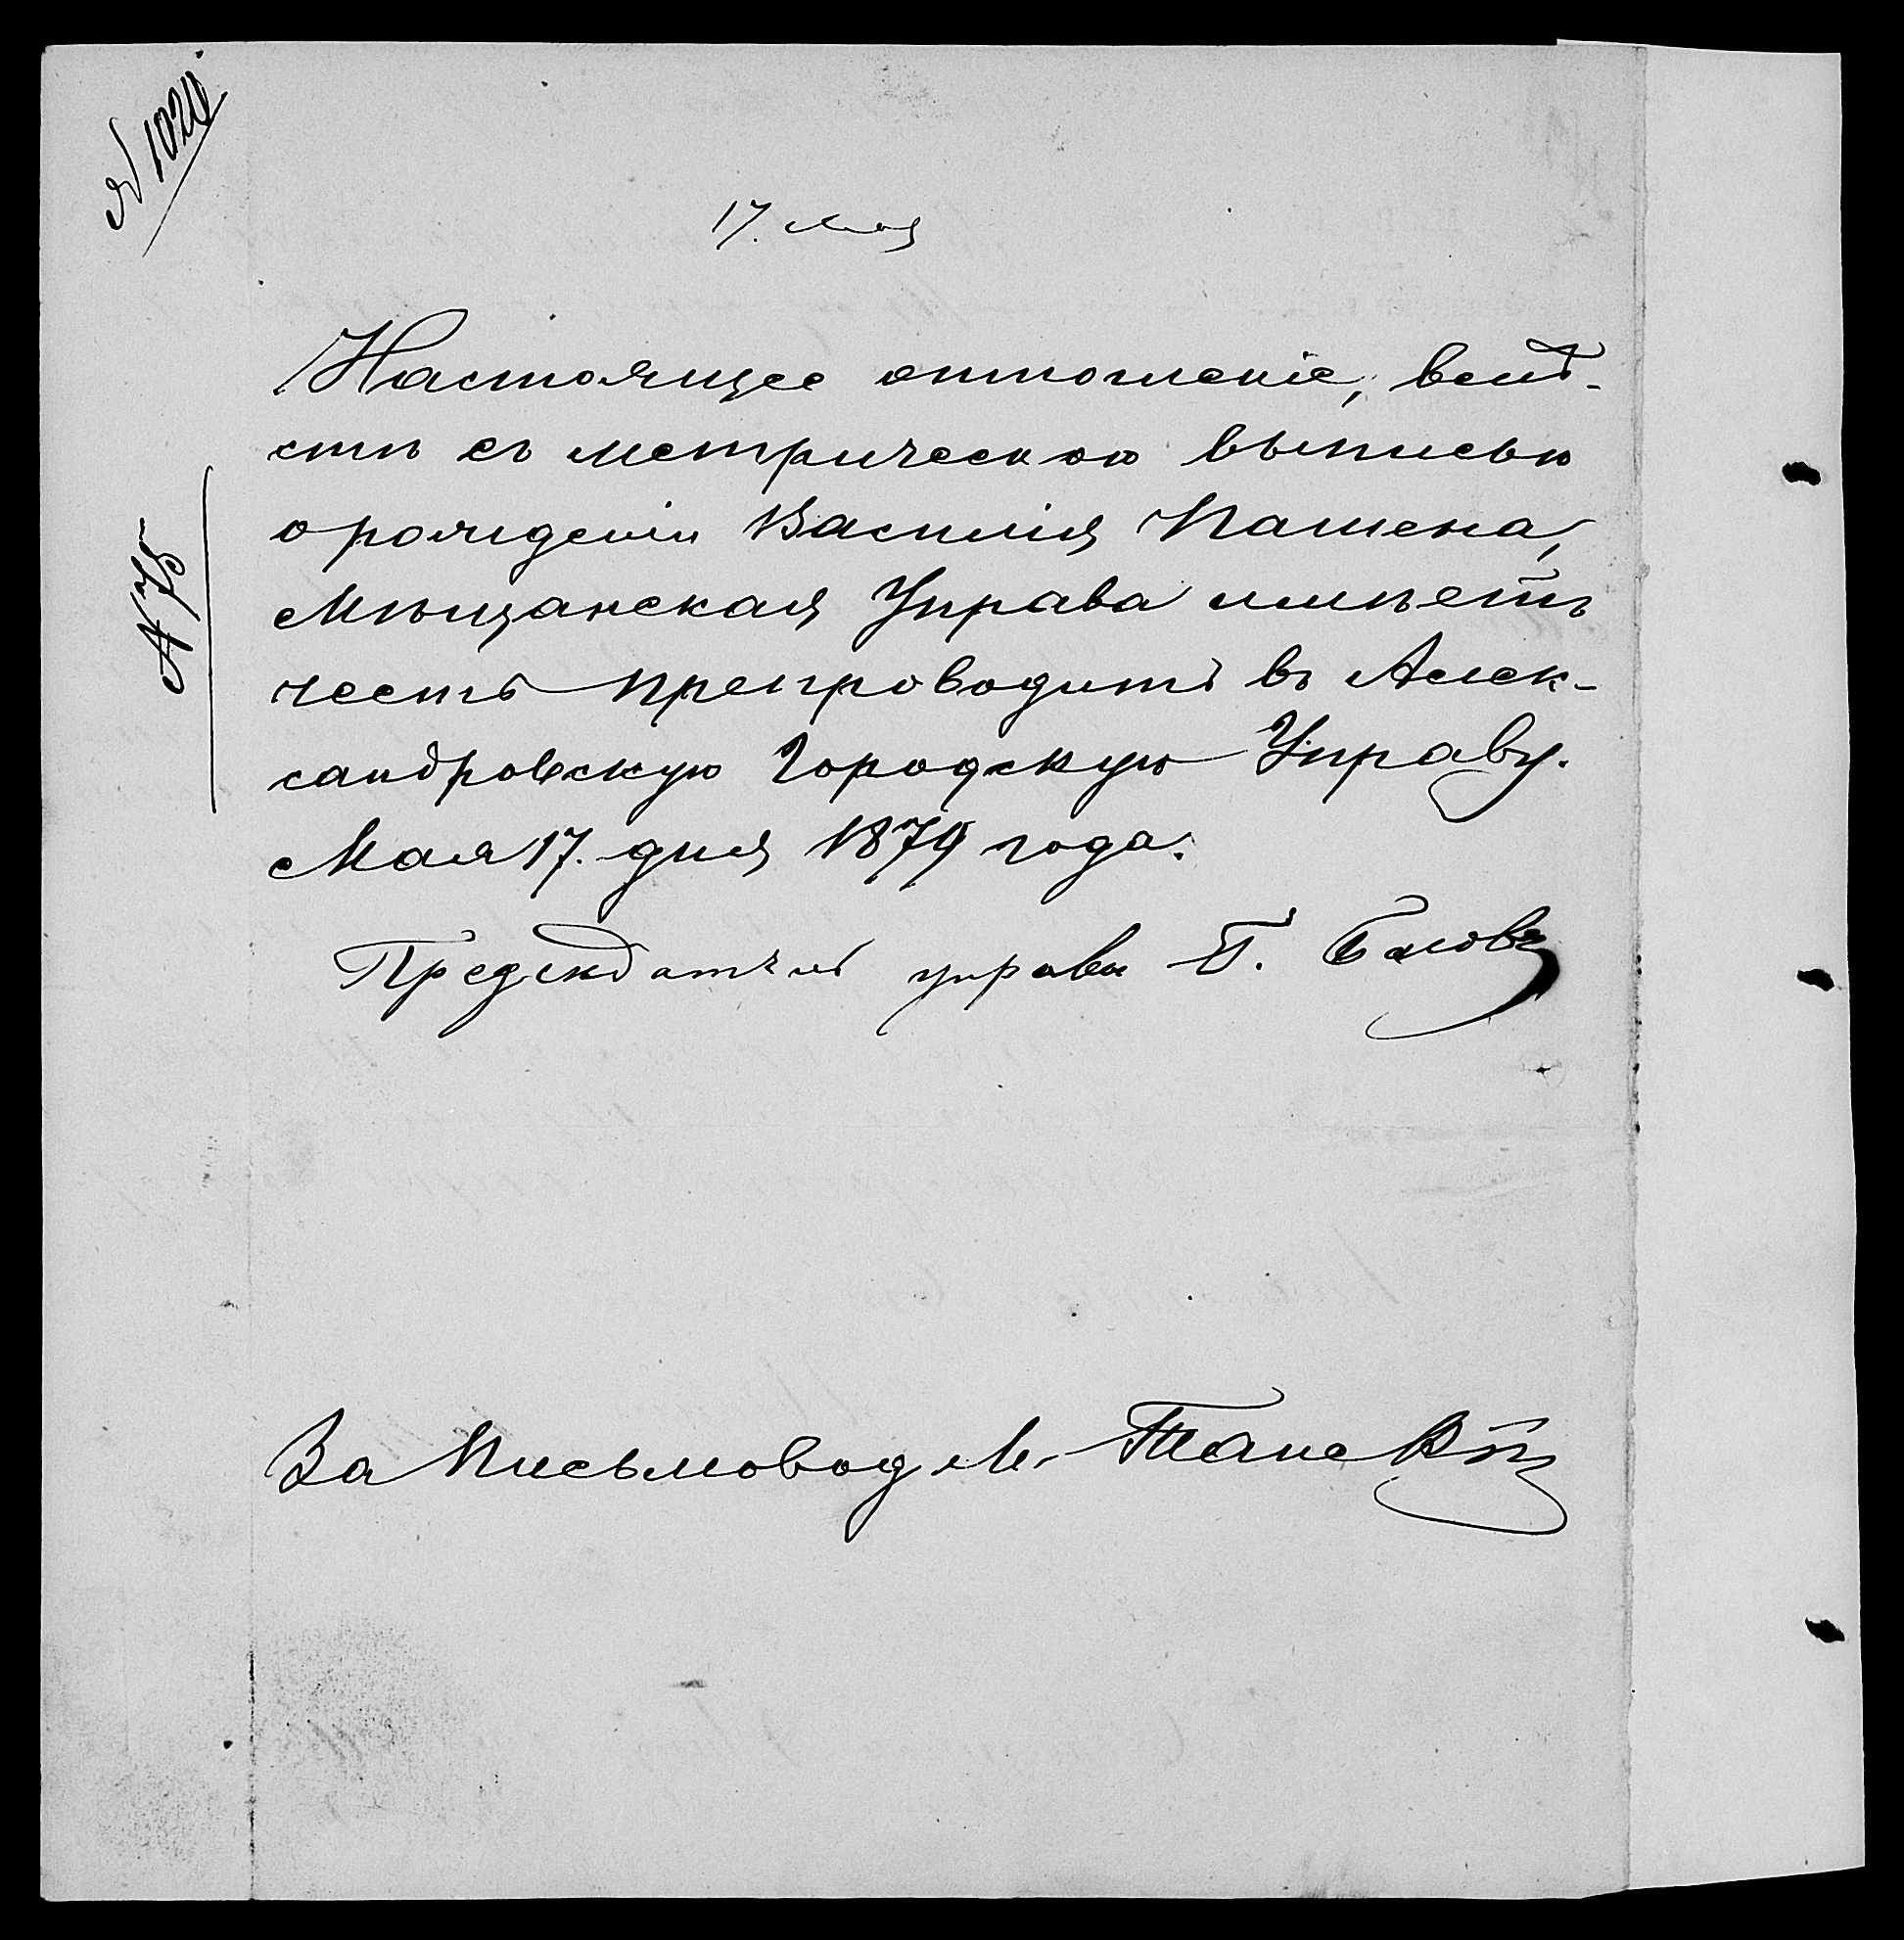 № 1020
17. мая
Настоящее отношеніе, вмѣ-
стѣ съ метрическою выписью
о рожденіи Василія Пашена,
№ 75
Мѣщанская Управа имѣетъ
честь препроводить въ Алек-
сандровскую Городскую Управу.
Мая 17. дня 1879 года.
Предсѣдатель управы П.
За Письмовод. М.